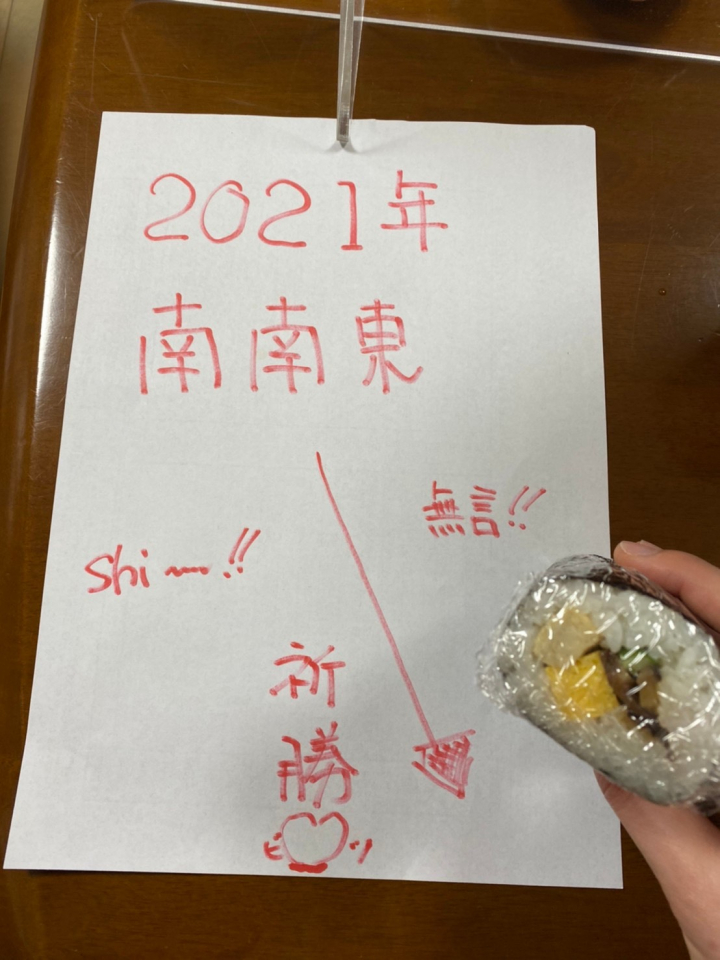 2021年
南南東
無言!!
shi〜!!
祈
勝